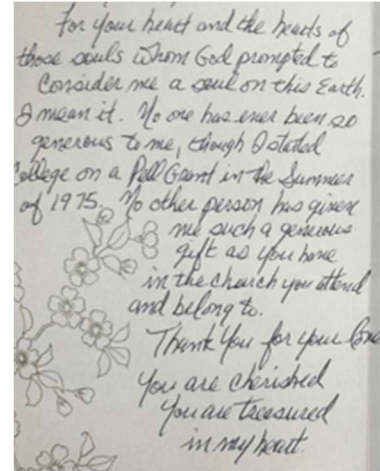 For your heart and the hearts of
those souls whom God prompted to
Consider me a soul on this Earth.
I mean it. No one has ever been so
generous to me, though I started
College on a Pell Grant in the Summer
of 1975. No other person has given
me such a generous
gift as you have
in the church you attend
and belong to.
Thank You for your Love
You are cherished
You are treasured
in my heart.